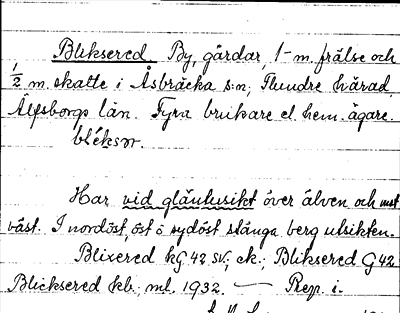 Bliksered. By, gårdar, 1 m. frälse och
½ m. skatte i Åsbräcka s:n, Flundre härad,
Älfsborgs län. Fyra brukare el. hem. ägare.
bléksər.
Har vid gläntusikt över älven och mot
väst. I nordöst, öst o sydöst stänga berg utsikten.
Blixered kG 42 sv, ek.; Bliksered G 42
Blicksered kb., ml. 1932. — Rep. i.